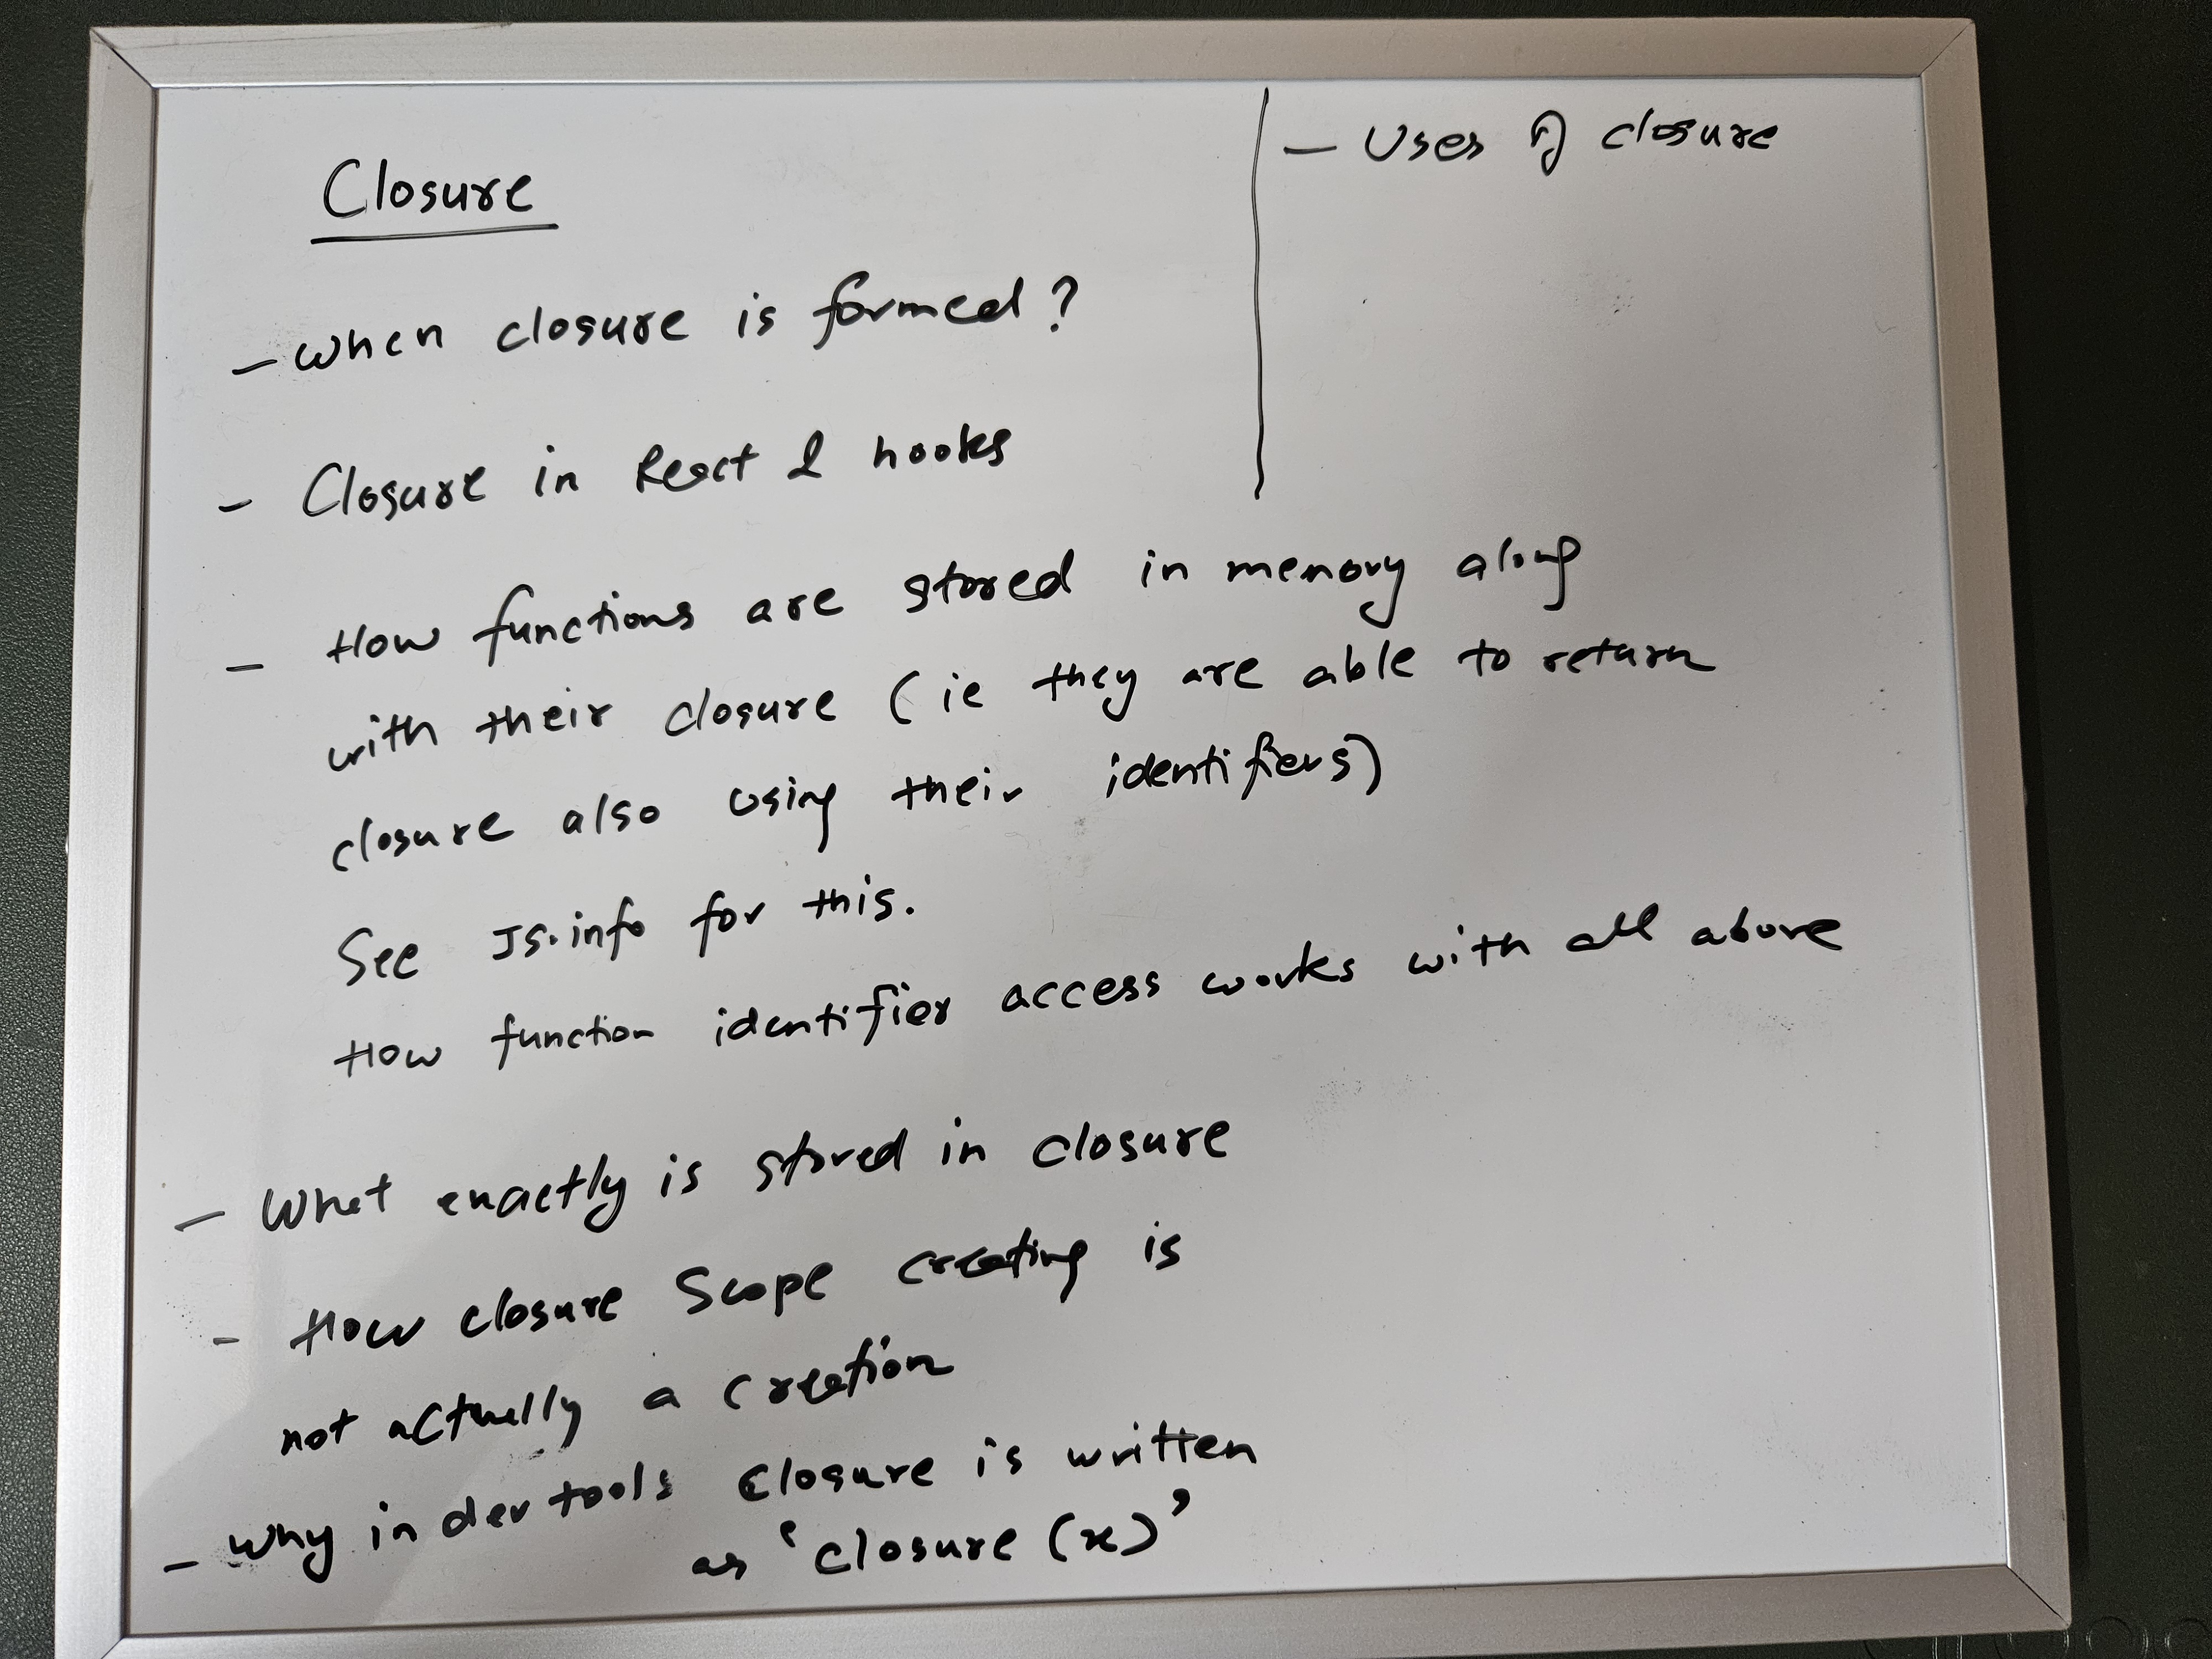 Closure
- When closure is formed?
- Closure in React & hooks
- How functions are stored in memory along
with their closure (ie they are able to return
closure also using their identifiers)
See JS.info for this.
How function identifier access works with all above
- What exactly is stored in closure
- How closure Scope creating is
not actually a creation
- Why in dev tools closure is written
as 'closure (x)'
- Uses of closure